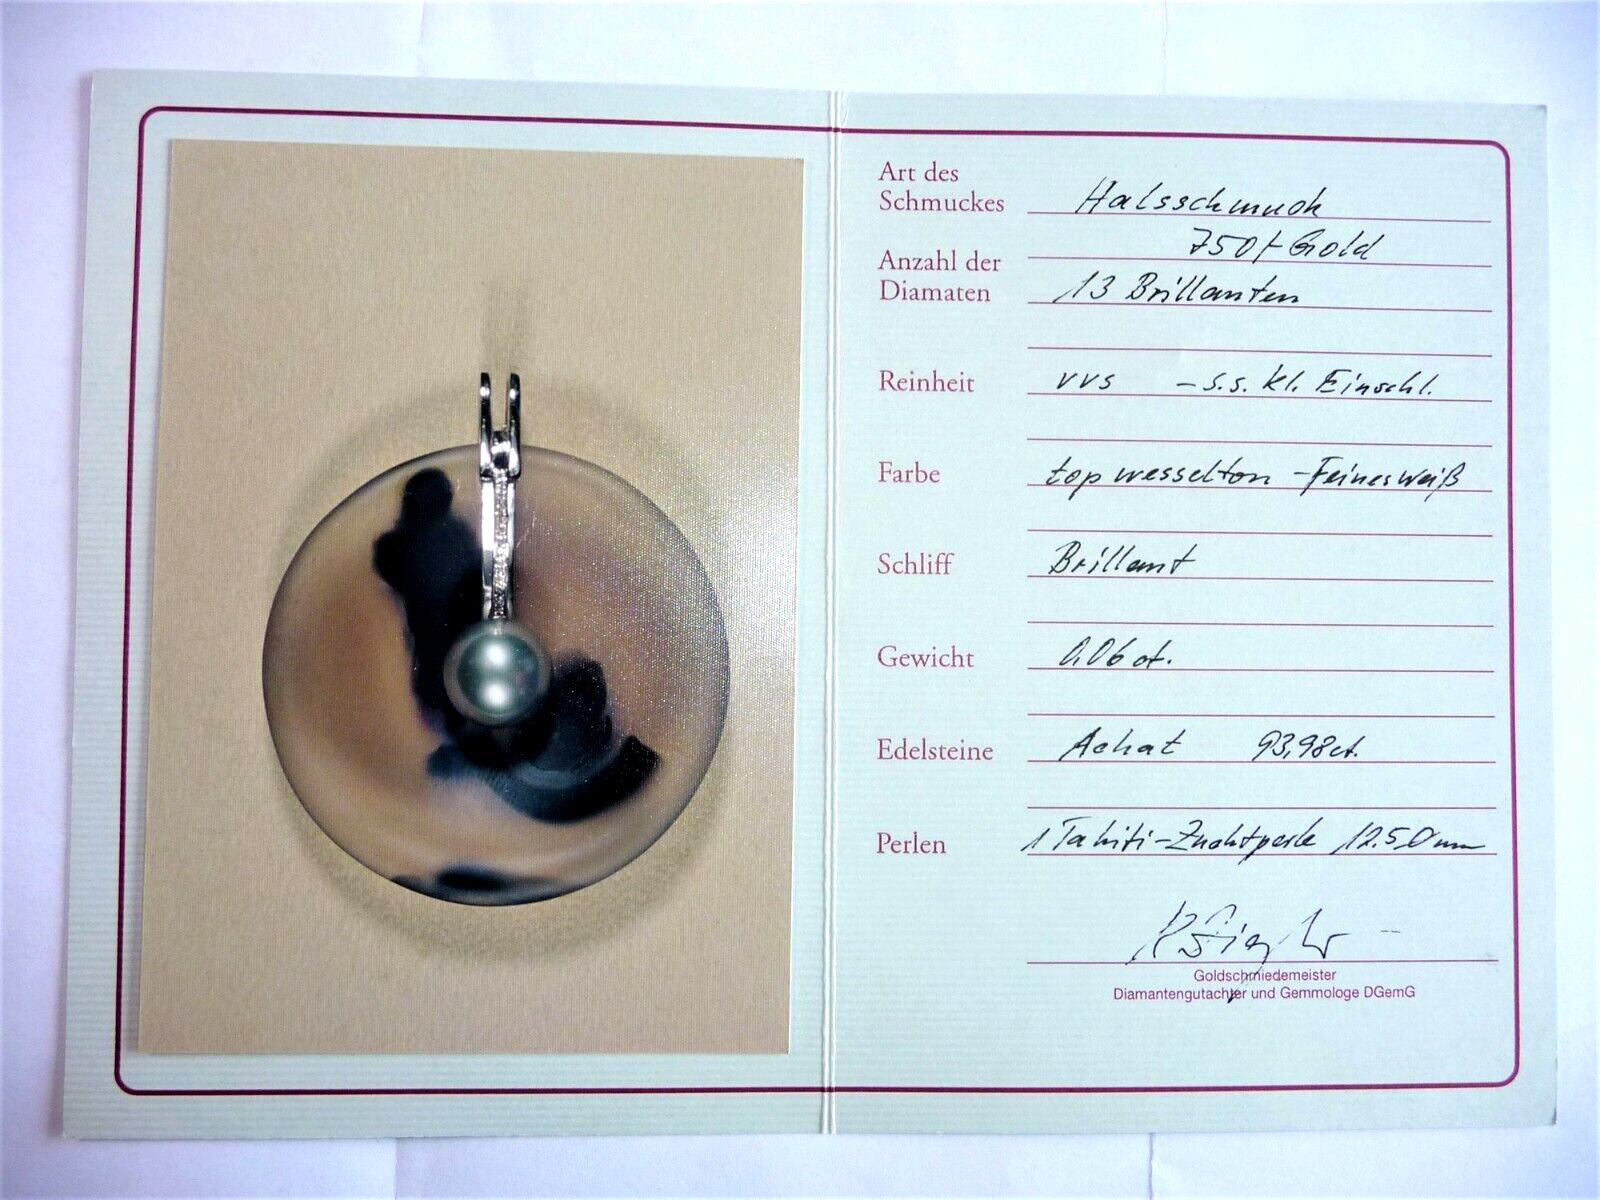 Art des
Schmuckes Halsschmuck
750/- Gold
Anzahl der
Diamaten 13 Brillanten
Reinheit vvs - s.s. kl. Einschl.
Farbe top wesselton - Feines weiß
Schliff Brillant
Gewicht 0,06 ct.
Edelsteine Achat 93,98 ct.
Perlen 1 Tahiti-Zuchtperle 12.50 mm
Goldschmiedemeister
Diamantengutachter und Gemmologe DGemG